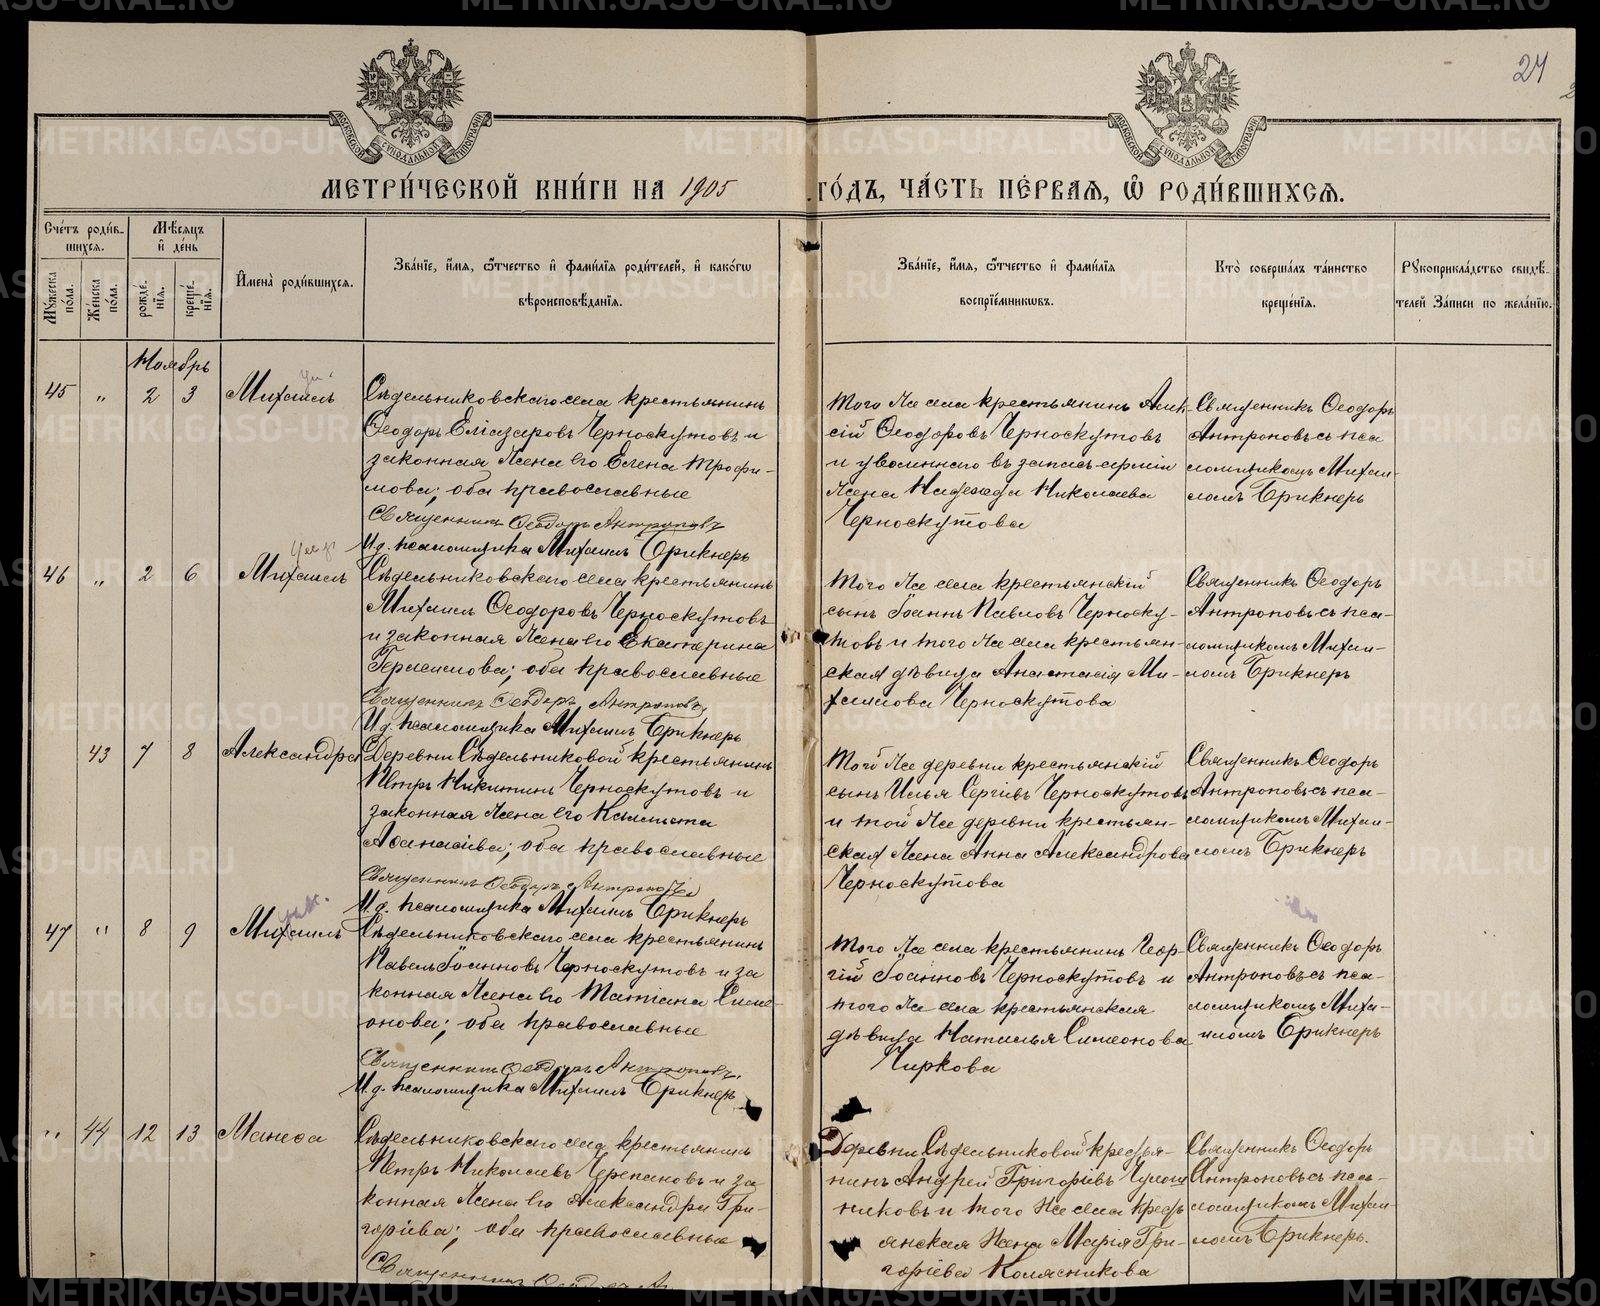 27
МОСКОВСКОЙ СУНОДАЛЬНОЙ ТИПОГРАФІИ
МОСКОВСКОЙ СУНОДАЛЬНОЙ ТИПОГРАФІИ
МЕТРИ́ЧЕСКОЙ КНИ́ГИ НА 1905 ГО́ДЪ, ЧА́СТЬ ПЕ́РВАЯ, Ѡ҆ РОДИ́ВШИХСЯ.
Сче́тъ роди́в-
шихся.
Му́жеска по́ла.
Же́нска по́ла.
Мѣ́сяцъ
и҆ де́нь
рожде́-
нїя.
креще́-
нїя.
И҆мена̀ роди́вшихся.
Зва́нїе, и҆́мя, ѻ҆́тчество и҆ фами́лїя роди́телей, и҆ како́гѡ
вѣроисповѣ́данїя.
Зва́нїе, и҆́мя, ѻ҆́тчество и҆ фами́лїя
воспрїе́мниковъ.
Кто̀ соверша́лъ та́инство
креще́нїя.
Рꙋкоприкла́дство свидѣ́-
телей За́писи по жела́нїю.
Ноябрь
45 " 2 3 Михаилъ
Сѣдельниковскаго села крестьянинъ
Ѳеодоръ Еліазаровъ Черноскутовъ и
законная жена его Елена Трофи-
мова; оба православные
Священникъ Ѳеодоръ Антроповъ
И.д. псаломщика Михаилъ Брикнеръ
того же села крестьянинъ Алек-
сій Ѳеодоровъ Черноскутовъ
и уволеннаго въ запасъ арміи
жена Надежда Николаева
Черноскутова
Священникъ Ѳеодоръ
Антроповъ съ пса
ломщикомъ Михаи-
ломъ Брикнеръ
46 " 2 6 Михаилъ
Сѣдельниковскаго села крестьянинъ
Михаилъ Ѳеодоровъ Черноскутовъ
и законная жена его Екатерина
Герасимова; оба православные
Священникъ Ѳеодоръ Антроповъ
И.д. псаломщика Михаилъ Брикнеръ
того же села крестьянскій
сынъ Іоаннъ Павловъ Черноску-
товъ и того же села крестьян-
ская дѣвица Анастасія Ми-
хаилова Черноскутова
Священникъ Ѳеодоръ
Антроповъ съ пса-
ломщикомъ Михаи-
ломъ Брикнеръ
43 7 8 Александра
Деревни Сѣдельниковой крестьянинъ
Петръ Никитинъ Черноскутовъ и
законная жена его Калиста
Аѳанасіева; оба православные
Священникъ Ѳеодоръ Антроповъ
И.д. псаломщика Михаилъ Брикнеръ
той же деревни крестьянскій
сынъ Илья Сергіевъ Черноскутовъ
и той же деревни крестьян-
ская жена Анна Александрова
Черноскутова
Священникъ Ѳеодоръ
Антроповъ съ пса-
ломщикомъ Михаи-
ломъ Брикнеръ
47 " 8 9 Михаилъ
Сѣдельниковскаго села крестьянинъ
Павелъ Іоанновъ Черноскутовъ и за
конная жена его Татіана Симе-
онова; оба православные
Священникъ Ѳеодоръ Антроповъ
И.д. псаломщика Михаилъ Брикнеръ
того же села крестьянинъ Геор-
гій Іоанновъ Черноскутовъ и
того же села крестьянская
дѣвица Наталья Симеонова
Чиркова
Священникъ Ѳеодоръ
Антроповъ съ пса-
ломщикомъ Миха-
иломъ Брикнеръ
" 44 12 13 Манеѳа
Сѣдельниковскаго села крестьянинъ
Петръ Николаевъ Черепановъ и за
конная жена его Александра Гри-
горіева; оба православные
Священникъ Ѳеодоръ А
Деревни Сѣдельниковой крестья-
нинъ Андрей Григоріевъ
никовъ и того же села кресть
янская жена Марія Гри-
горіева Колясникова
Священникъ Ѳеодоръ
Антроповъ съ пса-
ломщикомъ Михаи-
ломъ Брикнеръ.
METRIKI.GASO-URAL.RU